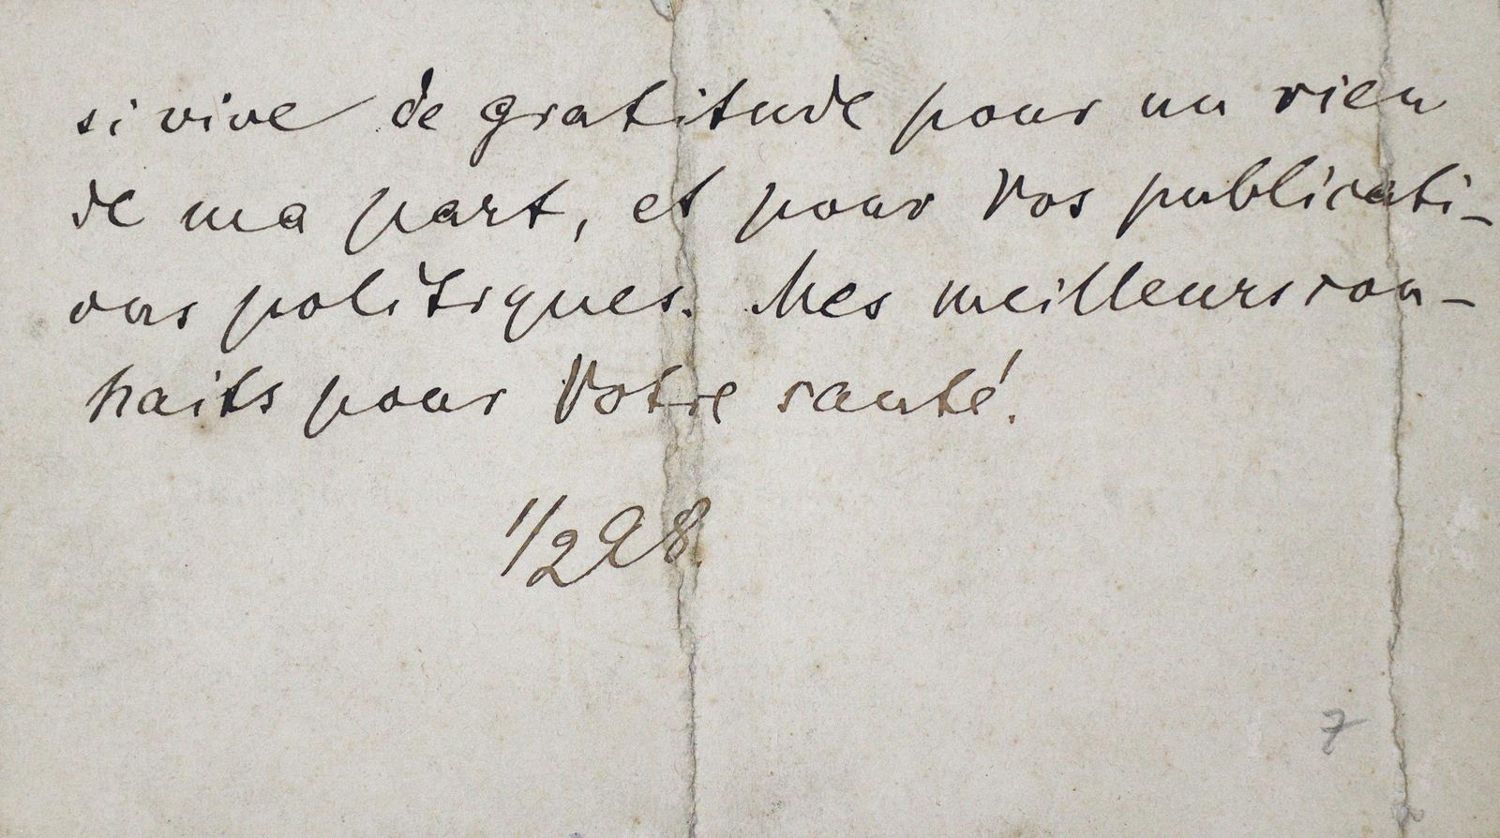 si vive de gratitude pour un rien
de ma part, et pour Vos publicati-
ons politiques. Mes meilleurs sou-
haits pour Votre santé.
1/2 98
7